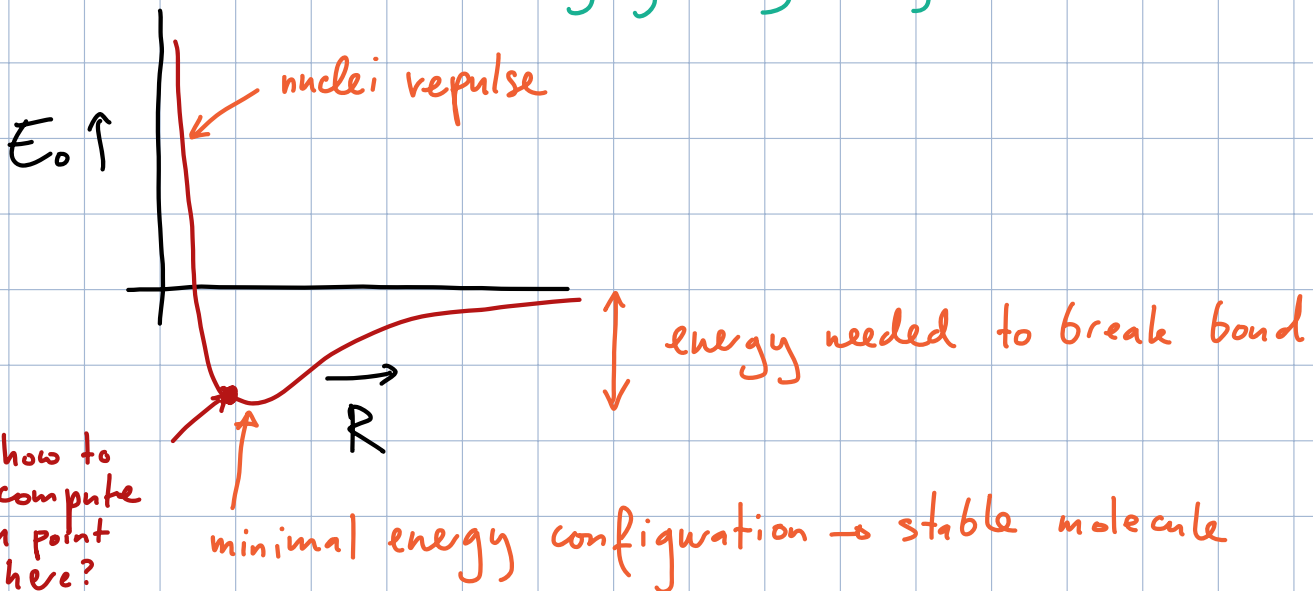 nuclei repulse
E₀ ↑
energy needed to break bond
R
how to
compute
point
here?
minimal energy configuration → stable molecule